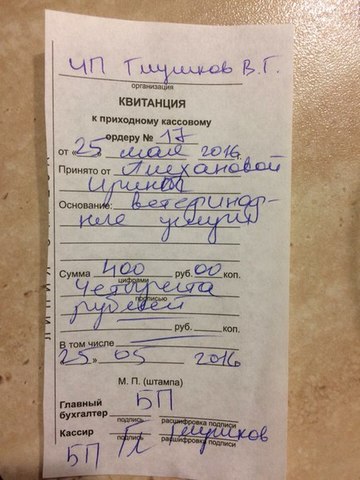 ЧП Глушков В.Г.
организация
КВИТАНЦИЯ
к приходному кассовому
ордеру № 17
от «25» мая 2016
Принято от Плехановой
Ирины
Основание: ветеринар-
ные услуги
Сумма 400 руб. 00 коп.
цифрами
Четыреста
прописью
рублей
руб. коп.
В том числе
25 » 05 2016
М. П. (штампа)
Главный
бухгалтер БП
подпись расшифровка подписи
Кассир БП Гл Глушков
подпись расшифровка подписи